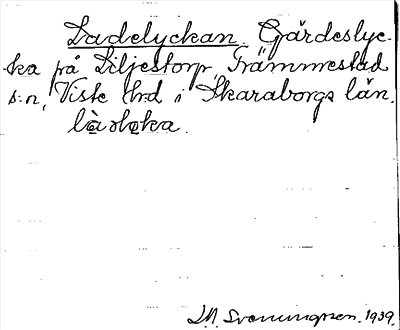 Ladelyckan. Gärdeslyc-
ka på Liljestorp, Främmestad
s:n, Viste h:d i Skaraborgs län.
Sveningsson. 1939.